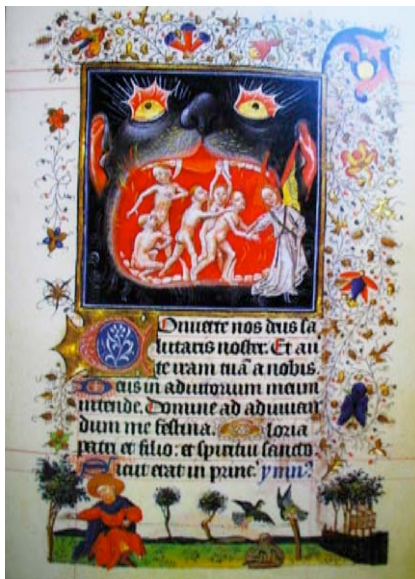 Conuerte nos deus sa
lutaris noster. Et au
te iram tuā a nobis.
Deus in adiutorium meum
intende. Domine ad adiuuan
dum me festina. Gloria
patri et filio: et spiritui sancto.
Sicut erat in princ.' ymn9